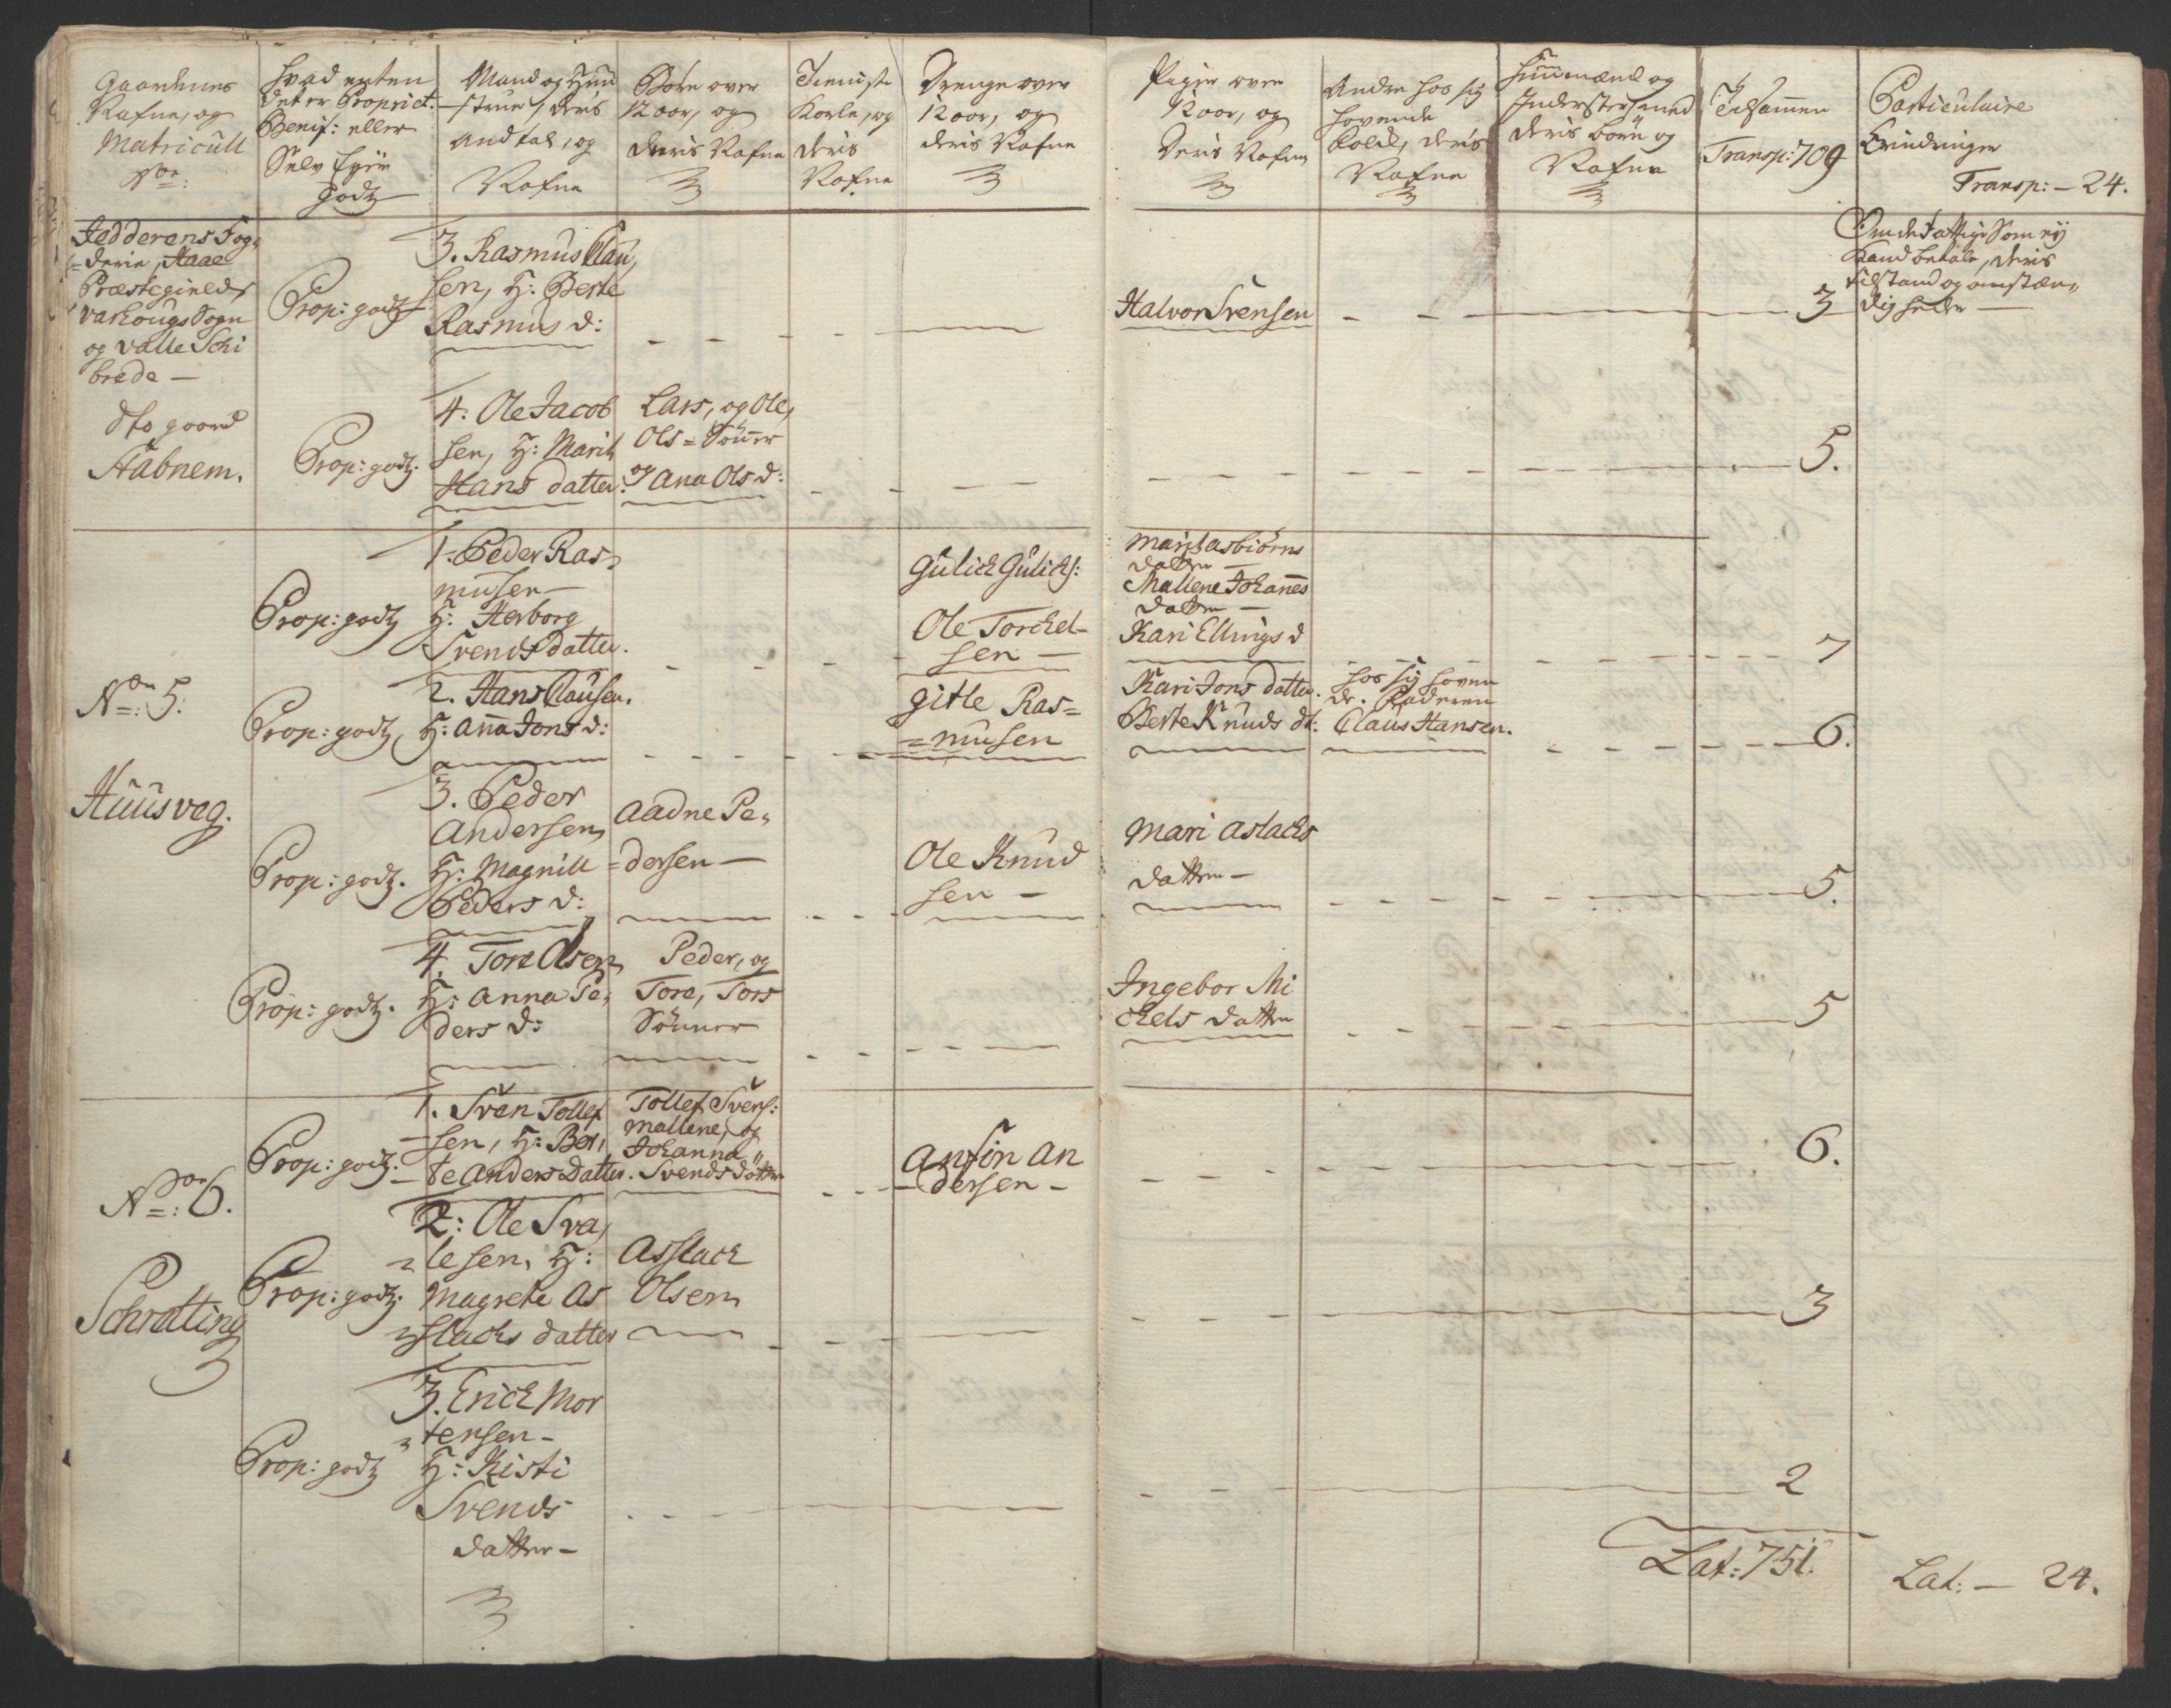 Gaardenes
Nafne, og
Matricull
No:
hvad enten
det er Propriet:
Benif: eller
Selv Eyer
godz
Mand og Hu
strue, deris
andtal, og
Nafne
Børn over
12 aar, og
deris Nafne
Tieniste
Karle, og
deris
Nafne
Drenge over
12 aar, og
deris Nafne
Piger over
12 aar, og
Deris Nafne
Andre hos sig
havende
Folck, deris
Nafne
Huusmænd og
Inderster med
deris børn og
Nafne
Tilsammen
Transp: 709
Particulaire
Erindringer
Transp: – 24.
Jedderens Fog„
=derie, Haae
Præstegields
Varhougs Sogn
og Valle Schi
brede –
dto gaard
Haabnem.
Prop: godz
3. Rasmus Clau,
sen, H: Berte
Rasmus d:
Halvor Svensen
3
Om de Fattige Som ey
Kand betale, deris
tilstand og omstæn„
digheder –
Prop: godz.
4. Ole Jacob
sen, H: Marit
Hans datter.
Lars, og Ole,
Ols = Sönner
og Ana Ols d:
5.
Prop: godz
1. Peder Ras„
musen –
H: Herborg
Svends datter.
Gulich Gulichs:
Ole Torchel–
sen –
Marit asbiörns
datter –
Mallene Johannes
datter –
Kari Ellings d
7
No: 5:
Huusveg.
Prop: godz
2. Hans Clausen.
H: Anna Jons d:
gitle Ras=
=musen
Kari Jons datter.
Berte Knuds dt:
hos sig haven
de. Faderen
Claus Hansen.
6.
Prop: godz.
3. Peder
Andersen
H: Magnill
Peders d:
Aadne Pe„
=dersen –
Ole Knud
sen –
Mari Aslachs
datter –
5.
Prop: godz.
4. Tore Olsen
H: Anna Pe„
ders d:
Peder, og
Tore, Tors
Sönner
Ingebor Mi
chels datter
5
No: 6.
Schratling
Prop: godz.
1. Sven Tollef
–sen, H: Ber,
–te Anders Datter.
Tollef Svens:
Mallene, og
Johanna„
Svends döttre
Anfin An
–dersen –
6.
Prop: godz.
2: Ole Sva,
„lesen, H:
Magrete As
„lachs datter
Asslach
Olsen
3
Prop: godz
3. Erich Mor
„tensen –
H: Kisti
Svends
datter –
2
Lat: 751.
Lat: – 24.